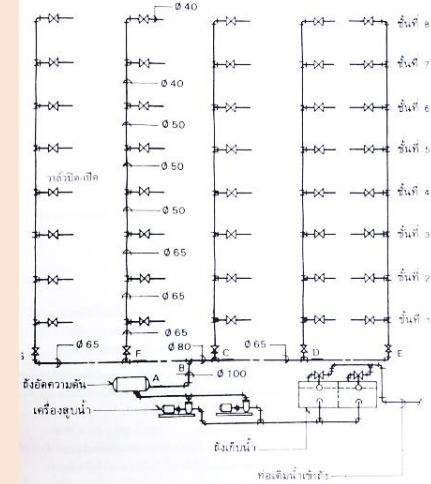 Ø 40
ชั้นที่ 8
ชั้นที่ 7
Ø 40
ชั้นที่ 6
Ø 50
ชั้นที่ 5
Ø 50
วาล์วปิด-เปิด
ชั้นที่ 4
Ø 50
ชั้นที่ 3
Ø 65
ชั้นที่ 2
Ø 65
ชั้นที่ 1
Ø 65
Ø 65
F
Ø 80
C
Ø 65
D
E
B
Ø 100
A
ถังอัดความดัน
เครื่องสูบน้ำ
ถังเก็บน้ำ
ท่อเติมน้ำเข้าถัง